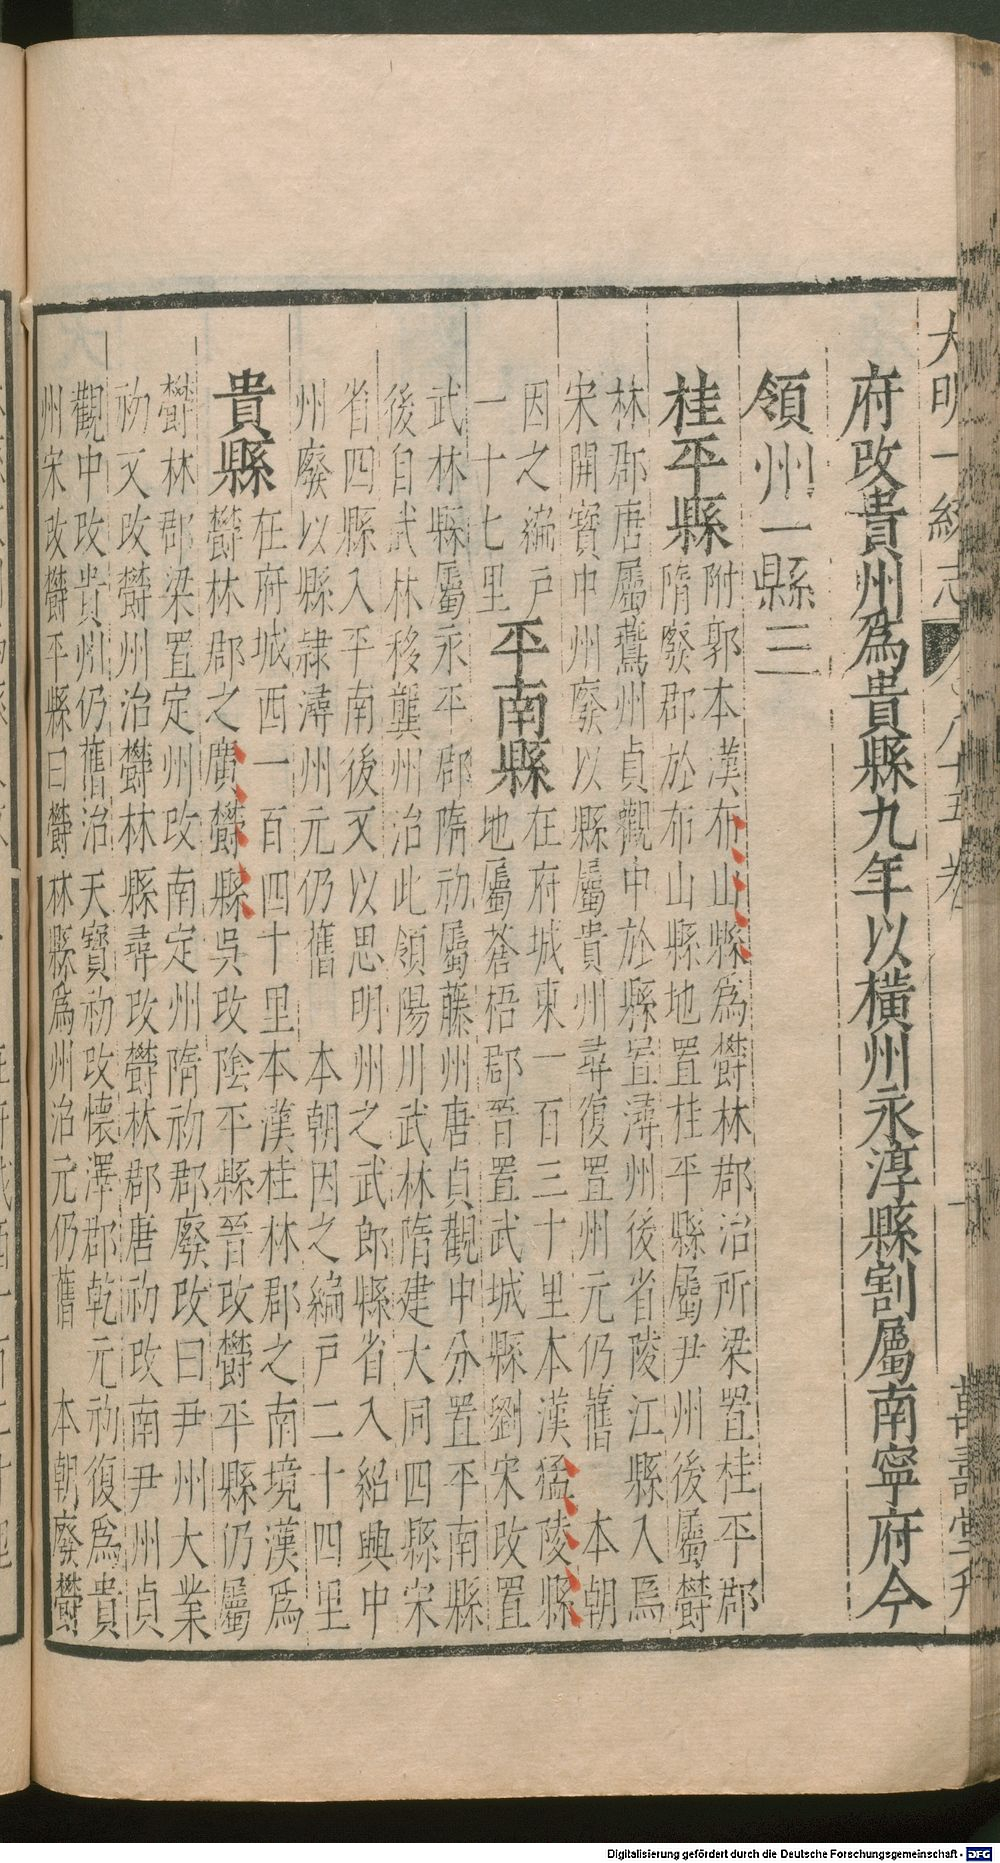 大明一統志
八十五卷
萬壽堂刊
府改貴州爲貴縣九年以橫州永淳縣割屬南寧府今
領州一縣三
桂平縣附郭本漢布山縣爲欝林郡治所梁置桂平郡
隋廢郡於布山縣地置桂平縣屬尹州後屬欝
林郡唐屬鷰州貞觀中於縣置潯州後省陵江縣入焉
宋開寶中州廢以縣屬貴州尋復置州元仍舊 本朝
因之編戶
一十七里
平南縣在府城東一百三十里本漢猛陵縣
地屬蒼梧郡晉置武城縣劉宋改置
武林縣屬永平郡隋初屬藤州唐貞觀中分置平南縣
後自武林移龔州治此領陽川武林隋建大同四縣宋
省四縣入平南後又以思明州之武郎縣省入紹興中
州廢以縣隷潯州元仍舊 本朝因之編戶二十四里
貴縣在府城西一百四十里本漢桂林郡之南境漢爲
欝林郡之廣欝縣吳改陰平縣晉改欝平縣仍屬
欝林郡梁置定州改南定州隋初郡廢改曰尹州大業
初又改欝州治欝林縣尋改欝林郡唐初改南尹州貞
觀中改貴州仍舊治天寶初改懷澤郡乾元初復爲貴
州宋改欝平縣曰欝林縣爲州治元仍舊 本朝廢欝
Digitalisierung gefördert durch die Deutsche Forschungsgemeinschaft - DFG